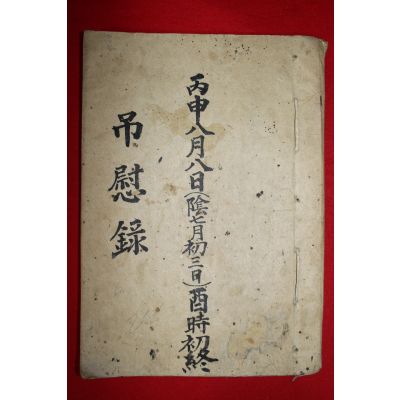 丙申八月八日(陰七月初三日)酉時初終
吊慰錄